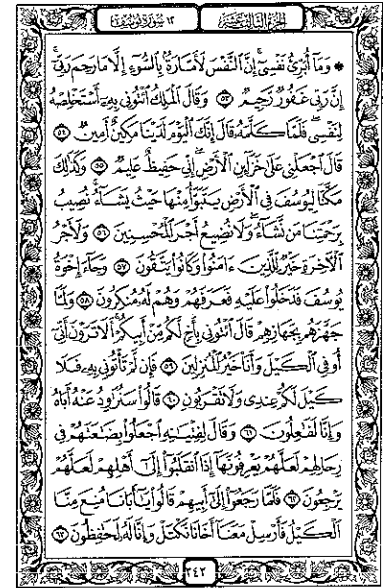 الجزء الثالث عشر
١٢ سورة يوسف
۞ وَمَآ أُبَرِّئُ نَفْسِيٓ ۚ إِنَّ ٱلنَّفْسَ لَأَمَّارَةٌۢ بِٱلسُّوٓءِ إِلَّا مَا رَحِمَ رَبِّيٓ ۚ
إِنَّ رَبِّي غَفُورٌ رَّحِيمٌ ٥٣ وَقَالَ ٱلْمَلِكُ ٱئْتُونِي بِهِۦٓ أَسْتَخْلِصْهُ
لِنَفْسِي ۖ فَلَمَّا كَلَّمَهُۥ قَالَ إِنَّكَ ٱلْيَوْمَ لَدَيْنَا مَكِينٌ أَمِينٌ ٥٤
قَالَ ٱجْعَلْنِي عَلَىٰ خَزَآئِنِ ٱلْأَرْضِ ۖ إِنِّي حَفِيظٌ عَلِيمٌ ٥٥ وَكَذَٰلِكَ
مَكَّنَّا لِيُوسُفَ فِي ٱلْأَرْضِ يَتَبَوَّأُ مِنْهَا حَيْثُ يَشَآءُ ۚ نُصِيبُ
بِرَحْمَتِنَا مَن نَّشَآءُ ۖ وَلَا نُضِيعُ أَجْرَ ٱلْمُحْسِنِينَ ٥٦ وَلَأَجْرُ
ٱلْأٓخِرَةِ خَيْرٌ لِّلَّذِينَ ءَامَنُوا۟ وَكَانُوا۟ يَتَّقُونَ ٥٧ وَجَآءَ إِخْوَةُ
يُوسُفَ فَدَخَلُوا۟ عَلَيْهِ فَعَرَفَهُمْ وَهُمْ لَهُۥ مُنكِرُونَ ٥٨ وَلَمَّا
جَهَّزَهُم بِجَهَازِهِمْ قَالَ ٱئْتُونِي بِأَخٍ لَّكُم مِّنْ أَبِيكُمْ ۚ أَلَا تَرَوْنَ أَنِّيٓ
أُوفِي ٱلْكَيْلَ وَأَنَا۠ خَيْرُ ٱلْمُنزِلِينَ ٥٩ فَإِن لَّمْ تَأْتُونِي بِهِۦ فَلَا
كَيْلَ لَكُمْ عِندِي وَلَا تَقْرَبُونِ ٦٠ قَالُوا۟ سَنُرَٰوِدُ عَنْهُ أَبَاهُ
وَإِنَّا لَفَٰعِلُونَ ٦١ وَقَالَ لِفِتْيَٰنِهِ ٱجْعَلُوا۟ بِضَٰعَتَهُمْ فِي
رِحَالِهِمْ لَعَلَّهُمْ يَعْرِفُونَهَآ إِذَا ٱنقَلَبُوٓا۟ إِلَىٰٓ أَهْلِهِمْ لَعَلَّهُمْ
يَرْجِعُونَ ٦٢ فَلَمَّا رَجَعُوٓا۟ إِلَىٰٓ أَبِيهِمْ قَالُوا۟ يَٰٓأَبَانَا مُنِعَ مِنَّا
ٱلْكَيْلُ فَأَرْسِلْ مَعَنَآ أَخَانَا نَكْتَلْ وَإِنَّا لَهُۥ لَحَٰفِظُونَ ٦٣
٢٤٢